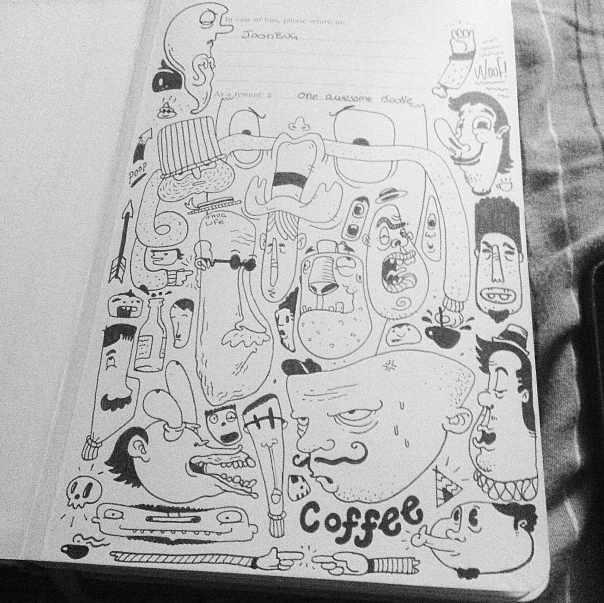 In case of loss, please return to:
JoonBug
Woof!
As a reward: $ one awesome doodle
POOP
THUG
LIFE
Coffee